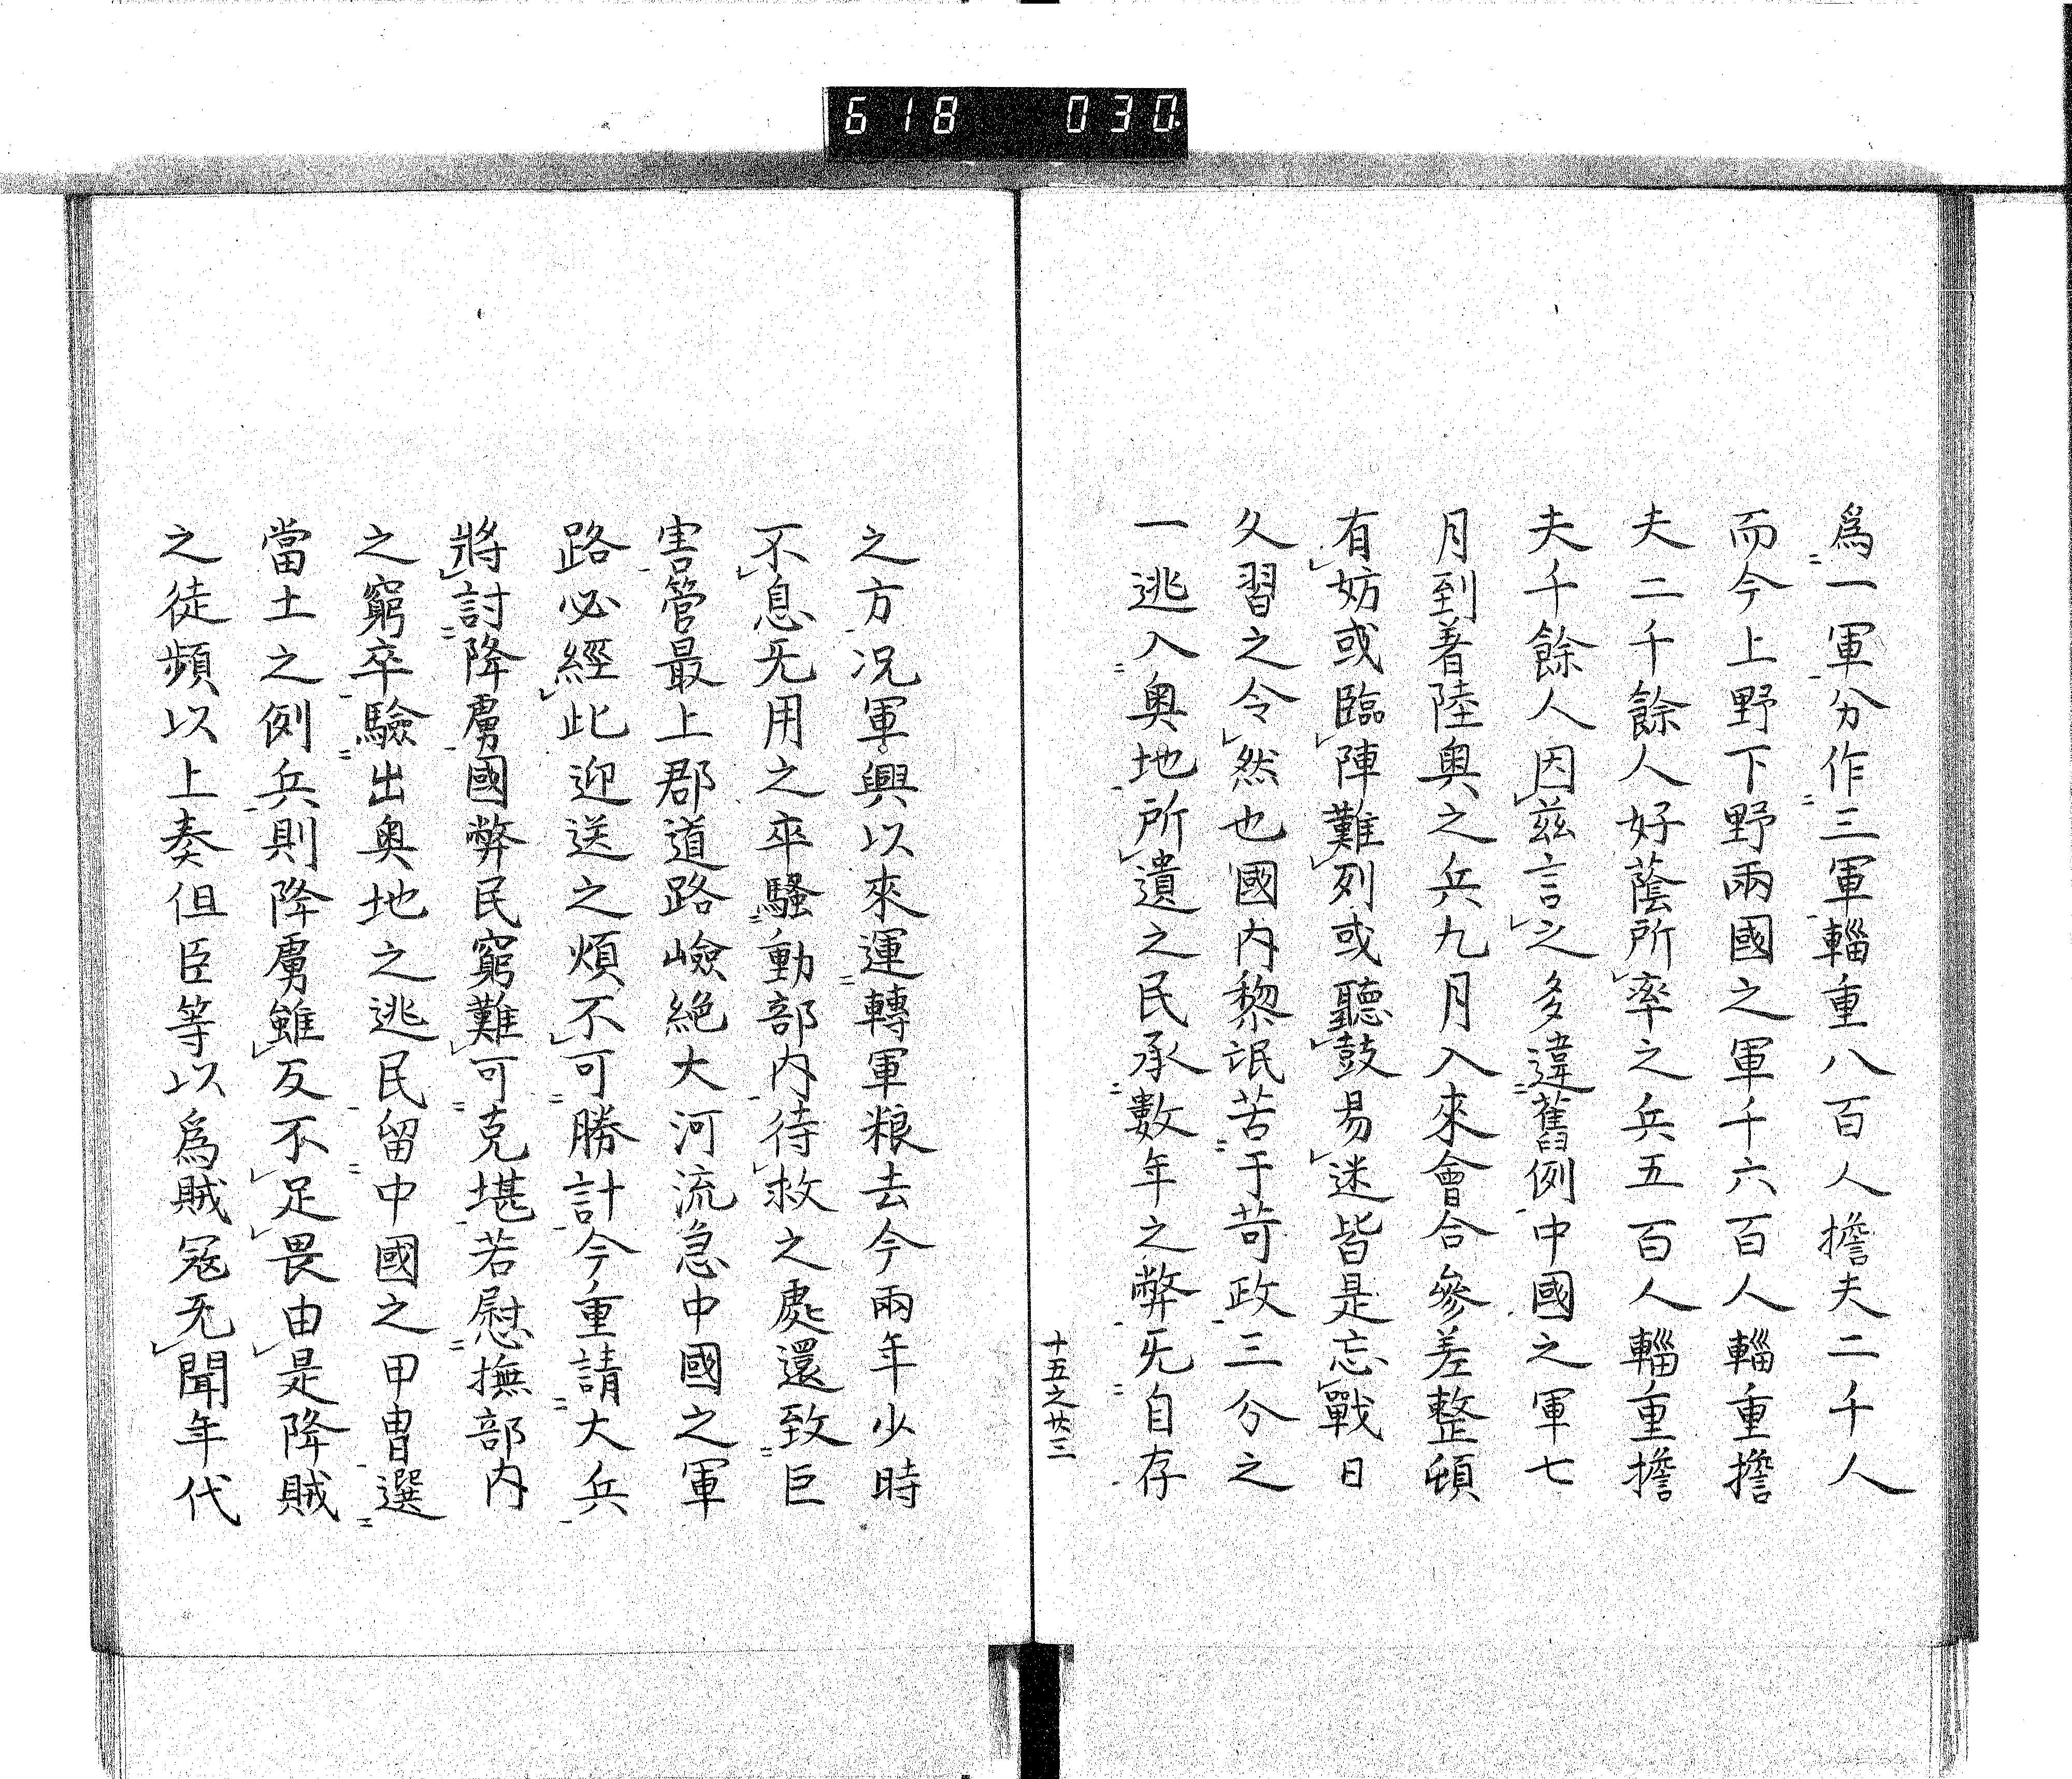 618 030
爲一軍分作三軍輜重八百人擔夫二千人
而今上野下野兩國之軍千六百人輜重擔
夫二千餘人好蔭所率之兵五百人輜重擔
夫千餘人因茲言之多違舊例中國之軍七
月到著陸奥之兵九月入來會合參差整頓
有妨或臨陣難列或聽鼓易迷皆是忘戰日
久習之令然也國内黎氓苦于苛政三分之
一逃入奥地所遺之民承數年之弊旡自存
十五之廿三
之方况軍興以來運轉軍粮去今兩年少時
不息旡用之卒騷動部内待救之處還致巨
害管最上郡道路嶮絶大河流急中國之軍
路必經此迎送之煩不可勝計今重請大兵
將討降虜國弊民窮難可克堪若慰撫部内
之窮卒驗出奥地之逃民留中國之甲冑選
當土之例兵則降虜雖反不足畏由是降賊
之徒頻以上奏但臣等以爲賊冦旡聞年代